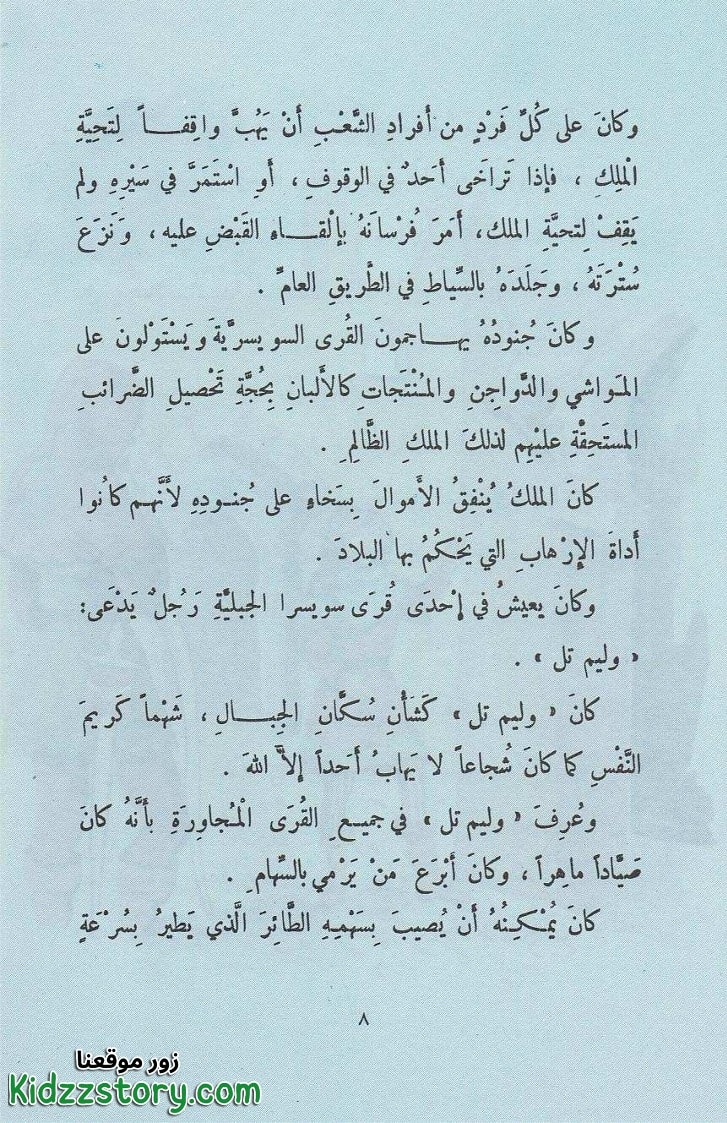 وكانَ على كُلِّ فَرْدٍ من أفرادِ الشَّعْبِ أنْ يَهُبَّ واقِفــاً لِتَحِيَّةِ
الْملِكِ ، فإذا تَراخَى أحَدٌ في الوقوفِ ، أوِ اسْتَمَرَّ في سَيْرِهِ ولم
يَقِفْ لِتحيَّةِ الملك ، أمَرَ فُرْسانَهُ بإلْقــاءِ القَبْضِ عليه ، ونَزَعَ
سُتْرَتَهُ ، وجَلَدَهُ بالسِّياطِ في الطَّريقِ العامِّ .
وكانَ جُنودُهُ يهــاجمونَ القُرى السويسريَّةَ ويَسْتَوْلونَ على
المَواشي والدَّواجِنِ والمُنْتَجاتِ كالألبانِ بِحُجَّةِ تَحْصيلِ الضَّرائبِ
المستَحِقَّةِ عليْهِم لذلكَ الملكِ الظَّالِمِ .
كانَ الملكُ يُنْفِقُ الأموالَ بِسَخاءٍ على جُنــودِهِ لأنَّهم كانُوا
أداةَ الإرْهابِ التي يَحْكُمُ بها البلادَ .
وكانَ يعيشُ في إحْدَى قُرَى سويسرا الجبليَّةِ رَجُلٌ يَدْعَى :
« وليم تل » .
كانَ « وليم تل » كَشَأْنِ سُكَّانِ الجِبــالِ ، شَهْماً كَريمَ
النَّفْسِ كما كانَ شُجاعاً لا يَهابُ أحَداً إلاَّ اللهَ .
وعُرِفَ « وليم تل » في جميـعِ القُرَى الْمُجاوِرَةِ بأنَّهُ كانَ
صَيَّاداً ماهِراً ، وكانَ أبْرَعَ مَنْ يَرْمي بالسِّهامِ .
كانَ يُمْكِنُهُ أنْ يُصيبَ بِسَهْمِهِ الطَّائِرَ الَّذي يَطيرُ بِسُرْعَةٍ
٨
زور موقعنا
Kidzzstory.com